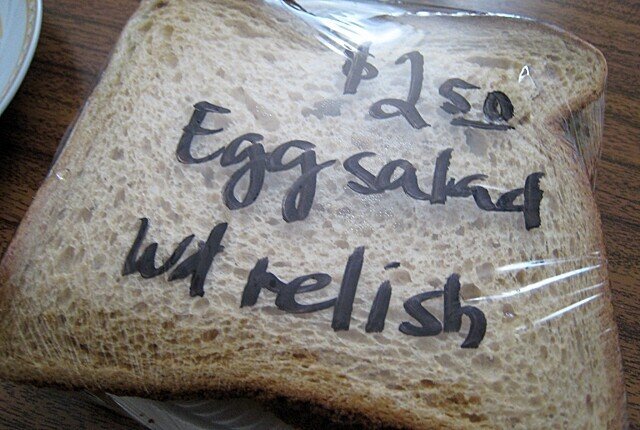 $2 50
Egg salad
wt relish